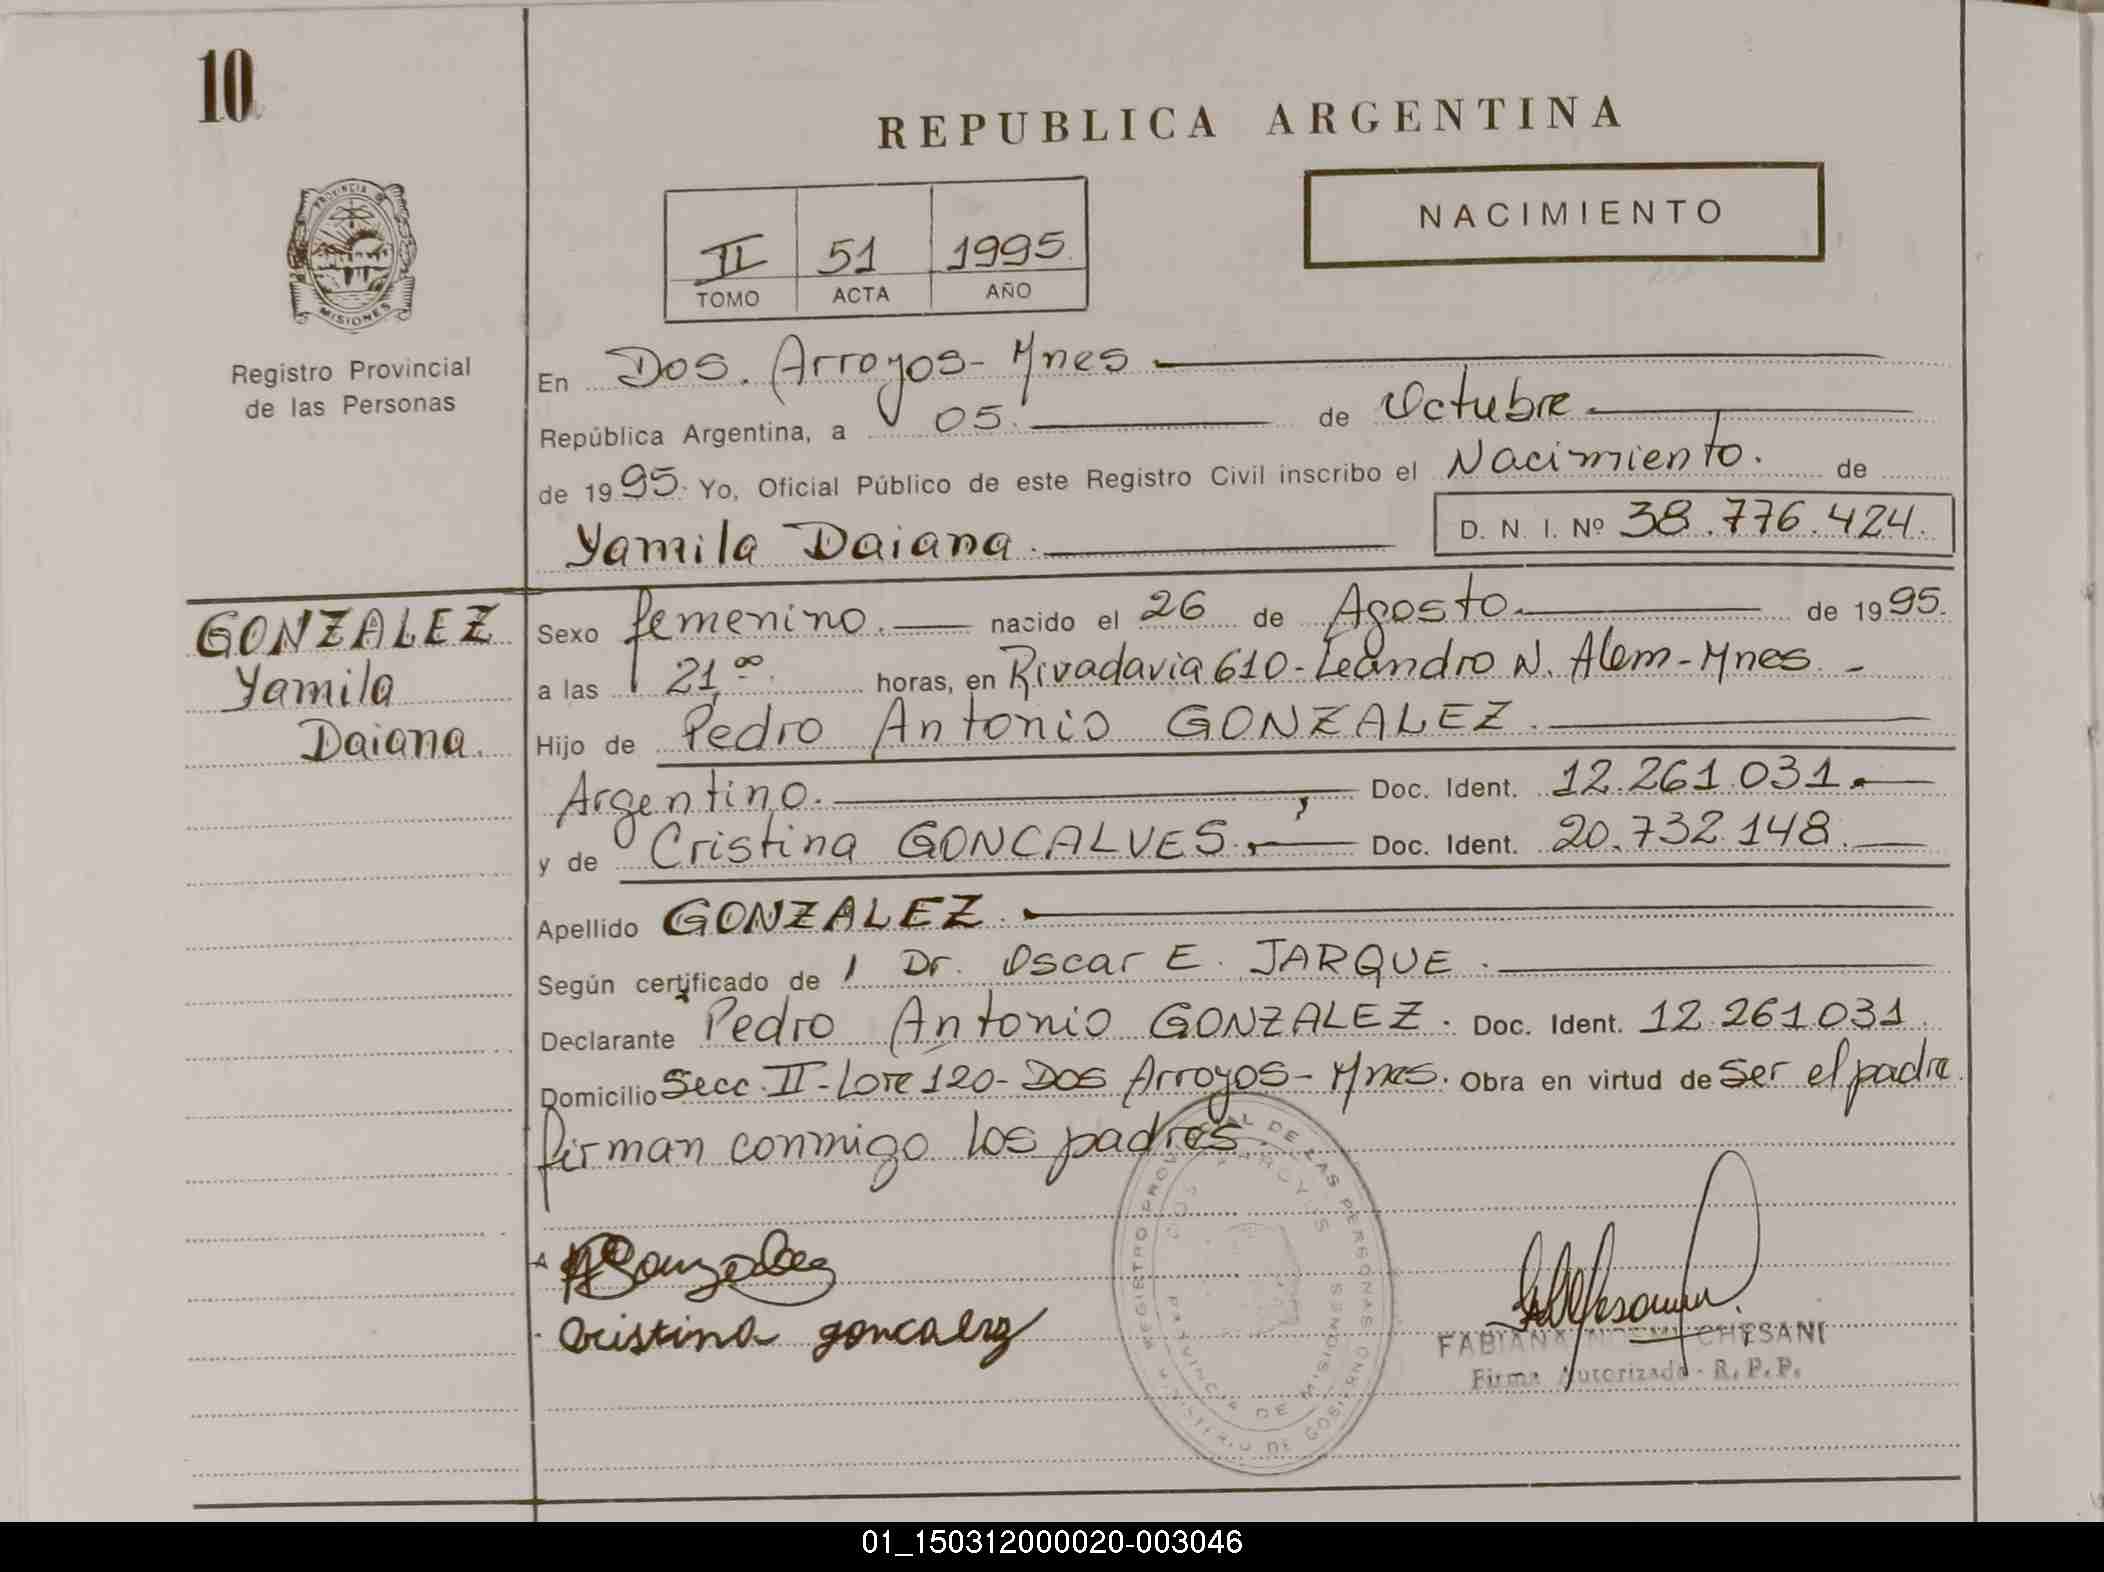 10
REPUBLICA ARGENTINA
NACIMIENTO
PROVINCIA DE
MISIONES
Registro Provincial
de las Personas
II 51 1995
TOMO ACTA AÑO
En Dos Arroyos - Mnes
República Argentina, a 05. de Octubre
de 1995. Yo, Oficial Público de este Registro Civil inscribo el Nacimiento. de
Yamila Daiana. D. N. I. Nº 38.776.424.
GONZALEZ
Yamila
Daiana.
Sexo femenino. nacido el 26 de Agosto. de 1995.
a las 21,00 horas, en Rivadavia 610 - Leandro N. Alem - Mnes. -
Hijo de Pedro Antonio GONZALEZ.
Argentino. Doc. Ident. 12.261.031.
y de Cristina GONCALVES. Doc. Ident. 20.732.148.
Apellido GONZALEZ.
Según certificado de Dr. Oscar E. JARQUE.
Declarante Pedro Antonio GONZALEZ. Doc. Ident. 12.261.031.
Domicilio Secc. II - Lote 120 - Dos Arroyos - Mnes. Obra en virtud de Ser el padre
firman conmigo los padres.
REGISTRO PROVINCIAL DE LAS PERSONAS
MINISTERIO DE GOBIERNO
DOS ARROYOS
PROVINCIA DE MISIONES
Gonzalez
Cristina goncalez
FABIANA NOEMI CHESANI
Firma Autorizada - R.P.P.
01_150312000020-003046